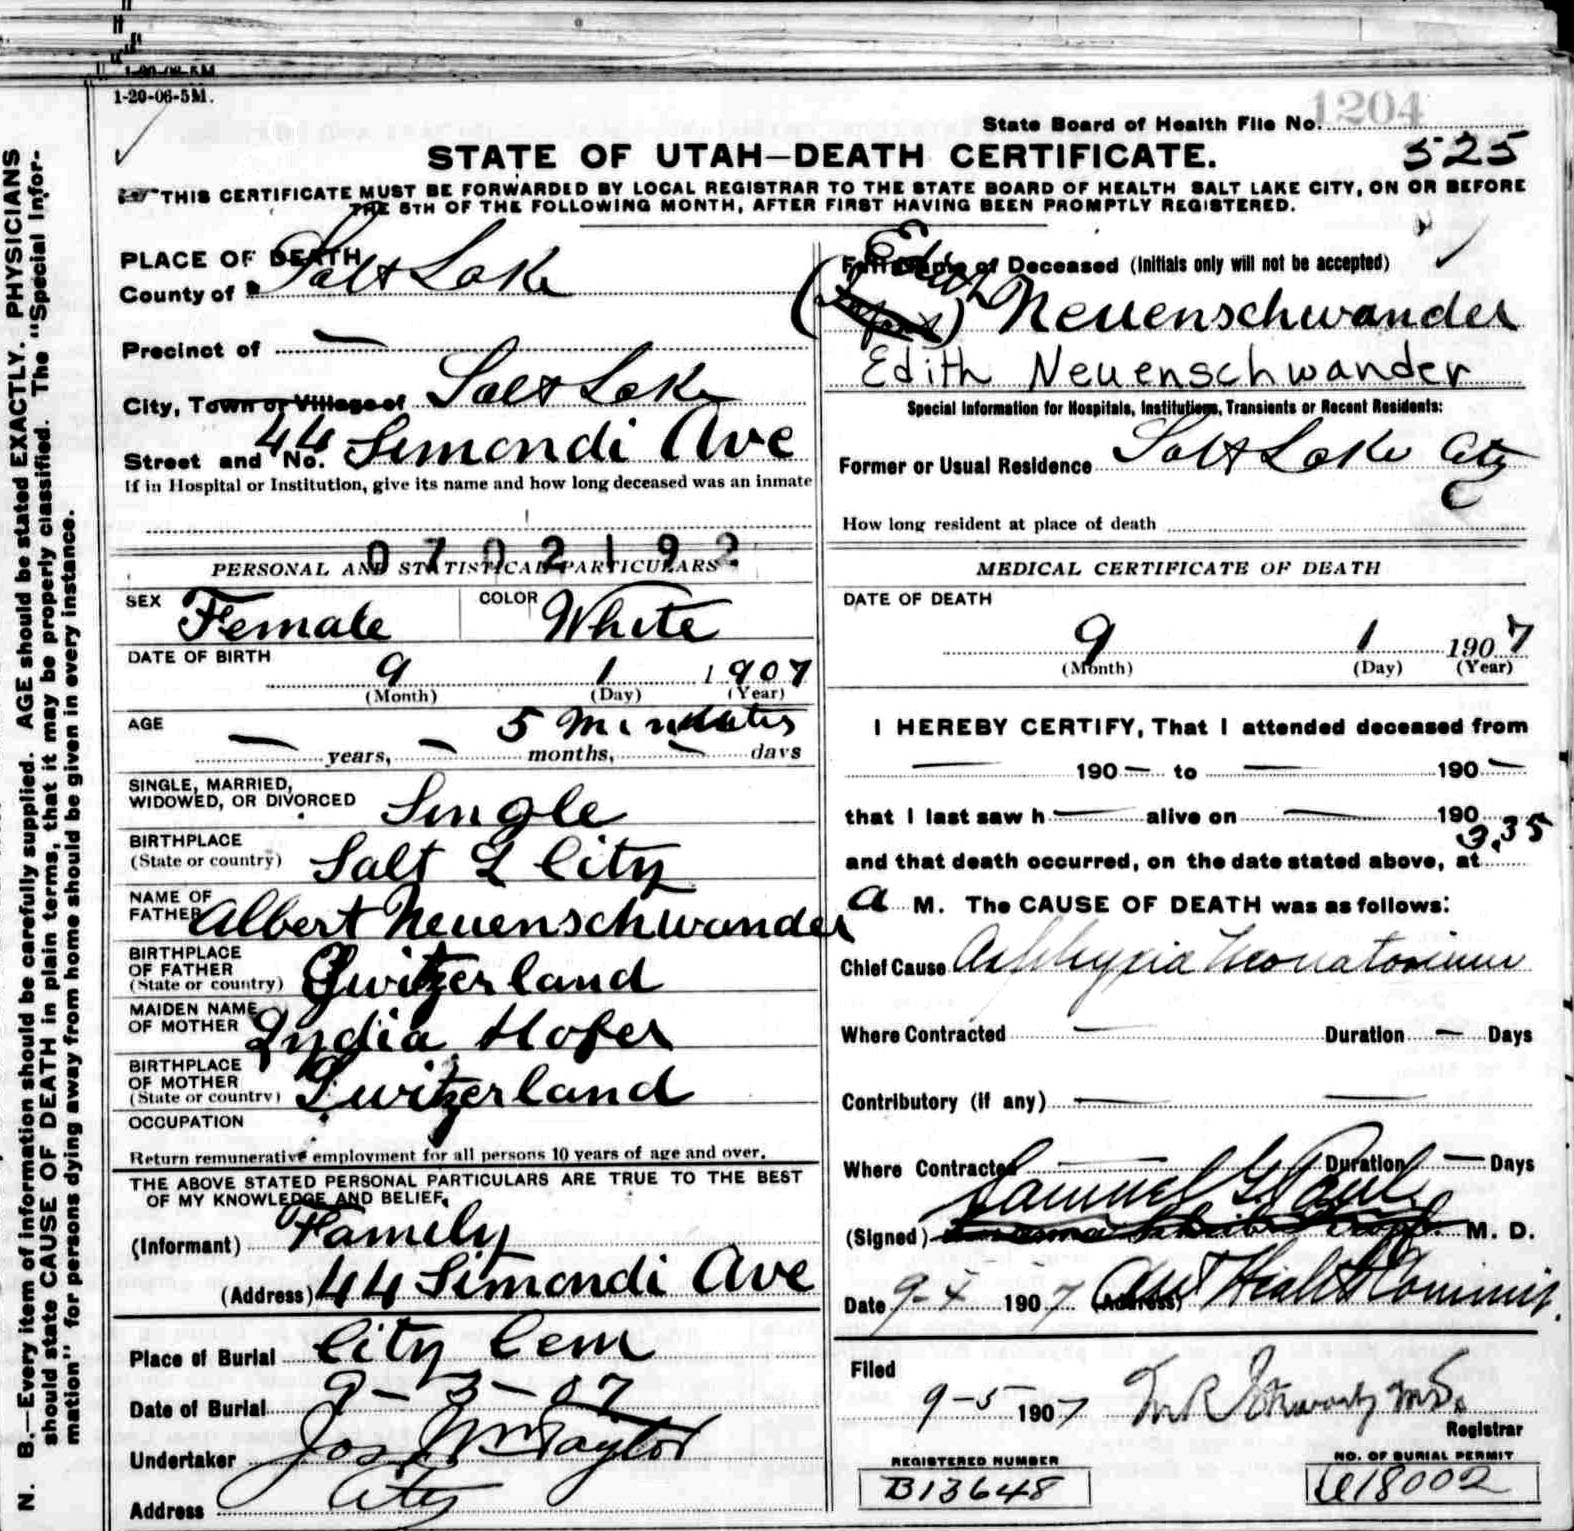 1-20-06-5M.
1204
State Board of Health File No.
525
STATE OF UTAH—DEATH CERTIFICATE.
THIS CERTIFICATE MUST BE FORWARDED BY LOCAL REGISTRAR TO THE STATE BOARD OF HEALTH SALT LAKE CITY, ON OR BEFORE
THE 5TH OF THE FOLLOWING MONTH, AFTER FIRST HAVING BEEN PROMPTLY REGISTERED.
N. B.—Every item of information should be carefully supplied. AGE should be stated EXACTLY. PHYSICIANS
should state CAUSE OF DEATH in plain terms, that it may be properly classified. The "Special Infor-
mation" for persons dying away from home should be given in every instance.
PLACE OF DEATH
County of Salt Lake
Precinct of —
City, Town or Village of Salt Lake
Street and No. 44 Simondi Ave
If in Hospital or Institution, give its name and how long deceased was an inmate
0702192
PERSONAL AND STATISTICAL PARTICULARS
SEX Female COLOR White
DATE OF BIRTH 9 1 1907
(Month) (Day) (Year)
AGE 5 Minutes
— years, — months, — days
SINGLE, MARRIED,
WIDOWED, OR DIVORCED Single
BIRTHPLACE
(State or country) Salt L City
NAME OF
FATHER Albert Neuenschwander
BIRTHPLACE
OF FATHER
(State or country) Switzerland
MAIDEN NAME
OF MOTHER Lydia Hofer
BIRTHPLACE
OF MOTHER
(State or country) Switzerland
OCCUPATION
Return remunerative employment for all persons 10 years of age and over.
THE ABOVE STATED PERSONAL PARTICULARS ARE TRUE TO THE BEST
OF MY KNOWLEDGE AND BELIEF.
(Informant) Family
(Address) 44 Simondi Ave
Place of Burial City Cem
Date of Burial 9-3-07
Undertaker Jos Wm Taylor
Address City
Full Name of Deceased (Initials only will not be accepted)
Edith
(Infant) Neuenschwander
Edith Neuenschwander
Special Information for Hospitals, Institutions, Transients or Recent Residents:
Former or Usual Residence Salt Lake City
How long resident at place of death
MEDICAL CERTIFICATE OF DEATH
DATE OF DEATH
9 1 1907
(Month) (Day) (Year)
I HEREBY CERTIFY, That I attended deceased from
— 190— to — 190—
that I last saw h— alive on — 190
and that death occurred, on the date stated above, at 3.35
a M. The CAUSE OF DEATH was as follows:
Chief Cause Asphyxia Neonatorium
Where Contracted — Duration — Days
Contributory (if any) —
Where Contracted Duration — Days
Samuel G. Paul
(Signed) M. D.
Date 9-4 1907 (Address) Asst Health Commis.
Filed
9-5 1907 M.D.
Registrar
REGISTERED NUMBER
B13648
NO. OF BURIAL PERMIT